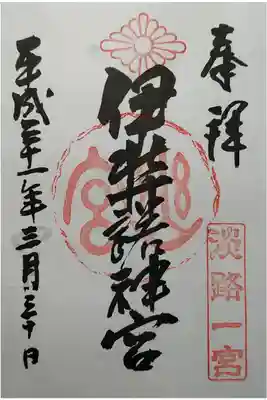 奉拝
淡路一宮
伊弉諾神宮
平成三十一年三月三十日